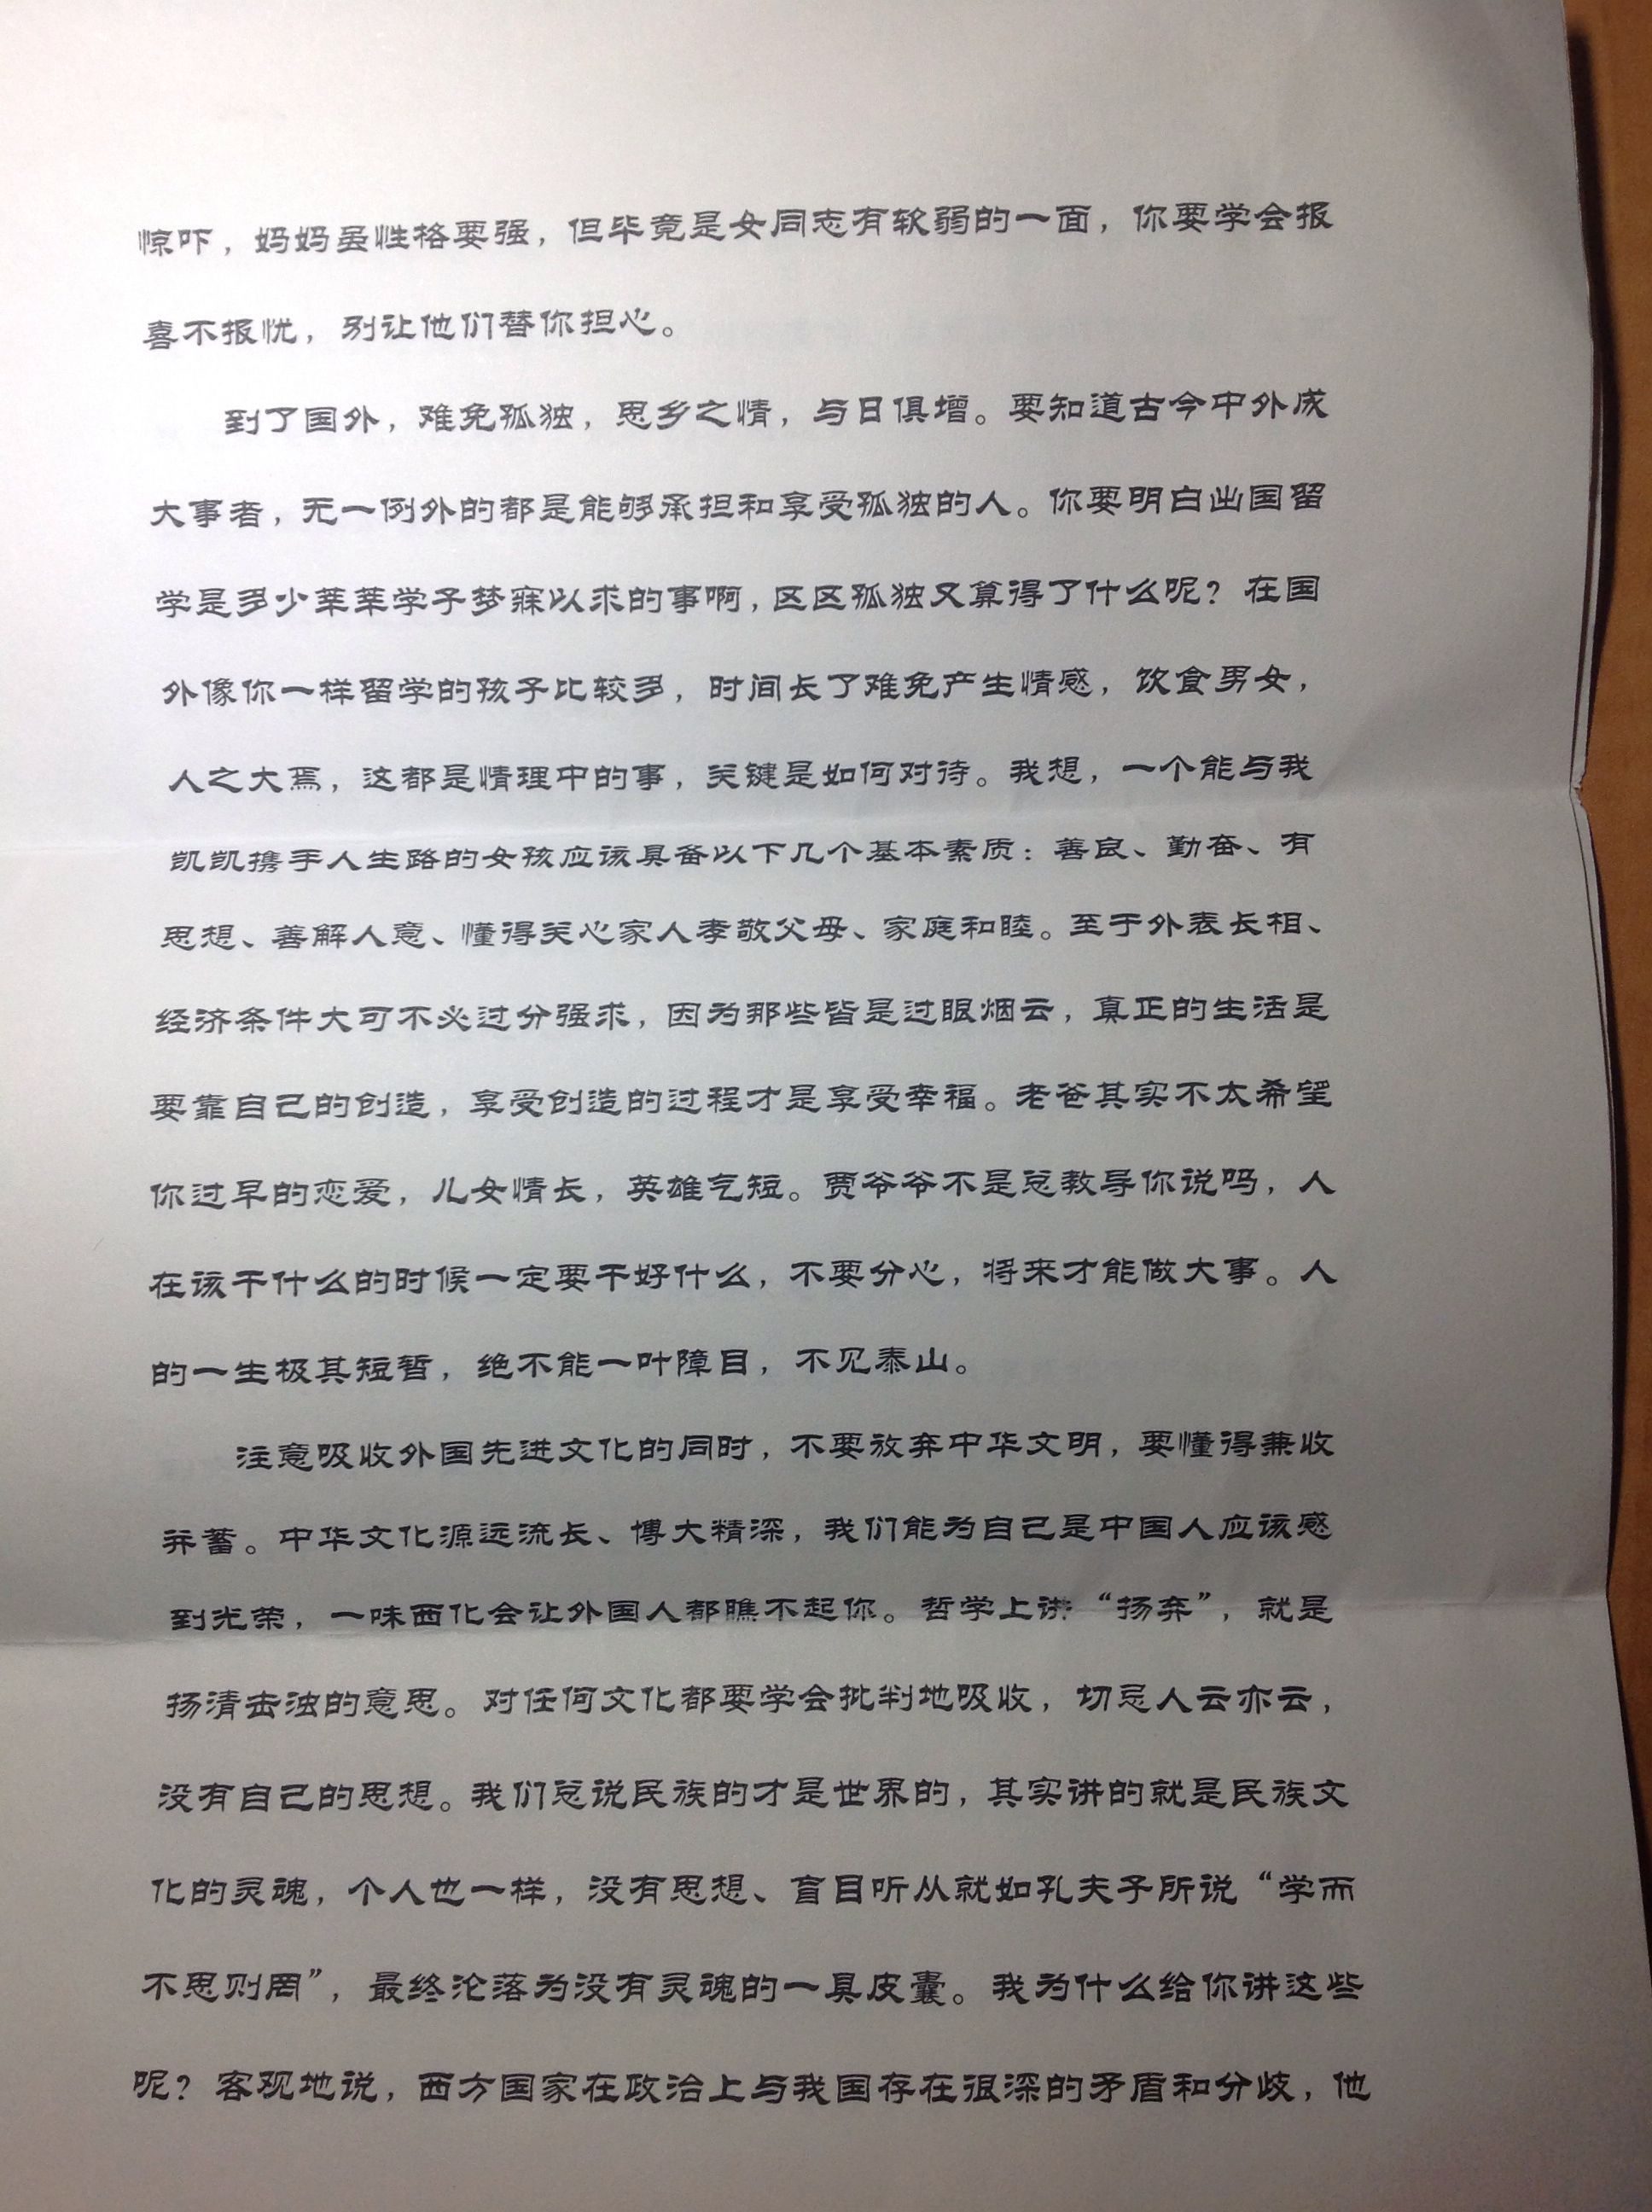 惊吓，妈妈虽性格要强，但毕竟是女同志有软弱的一面，你要学会报
喜不报忧，别让他们替你担心。
到了国外，难免孤独，思乡之情，与日俱增。要知道古今中外成
大事者，无一例外的都是能够承担和享受孤独的人。你要明白出国留
学是多少莘莘学子梦寐以求的事啊，区区孤独又算得了什么呢？在国
外像你一样留学的孩子比较多，时间长了难免产生情感，饮食男女，
人之大焉，这都是情理中的事，关键是如何对待。我想，一个能与我
凯凯携手人生路的女孩应该具备以下几个基本素质：善良、勤奋、有
思想、善解人意、懂得关心家人孝敬父母、家庭和睦。至于外表长相、
经济条件大可不必过分强求，因为那些皆是过眼烟云，真正的生活是
要靠自己的创造，享受创造的过程才是享受幸福。老爸其实不太希望
你过早的恋爱，儿女情长，英雄气短。贾爷爷不是总教导你说吗，人
在该干什么的时候一定要干好什么，不要分心，将来才能做大事。人
的一生极其短暂，绝不能一叶障目，不见泰山。
注意吸收外国先进文化的同时，不要放弃中华文明，要懂得兼收
并蓄。中华文化源远流长、博大精深，我们能为自己是中国人应该感
到光荣，一味西化会让外国人都瞧不起你。哲学上讲“扬弃”，就是
扬清击浊的意思。对任何文化都要学会批判地吸收，切忌人云亦云，
没有自己的思想。我们总说民族的才是世界的，其实讲的就是民族文
化的灵魂，个人也一样，没有思想、盲目听从就如孔夫子所说“学而
不思则罔”，最终沦落为没有灵魂的一具皮囊。我为什么给你讲这些
呢？客观地说，西方国家在政治上与我国存在很深的矛盾和分歧，他